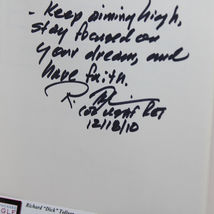 - Keep aiming high,
stay focused on
your dream, and
have faith.
Col USAF Ret
12/18/10
Richard "Dick" Toliver
GLE